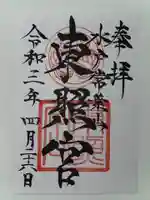 奉拝
水戸 常葉山
東照宮
令和三年 四月二十六日